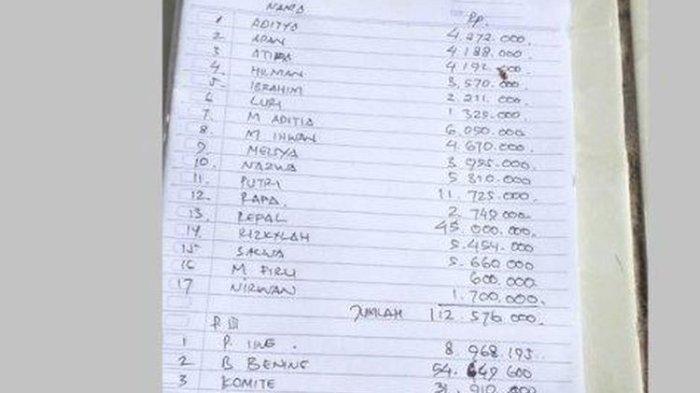 NAMA Rp.
1 ADITYA 4.272.000.
2 APAN 4.188.000.
3 ATIRA 4.192.000.
4 HILMAN 3.570.000.
5 IBRAHIM 2.211.000.
6 LURI 1.325.000.
7. M ADITIA 6.050.000.
8. M IHWAN 4.670.000.
9. MELIYA 3.995.000.
10. NAZWA 5.310.000.
11. PUTRI 11.725.000
12. RAPA. 2.749.000
13. REPAL 45.000.000.
14 RIZKYLAH 5.454.000.
15 SALWA 5.660.000
16 M 600.000.
17 NIRWAN 1.700.000.
JUMLAH 112.576.000.
1 P. 8.968.195.
2 B BENING 54.649.600
3 KOMITE 31.910.000